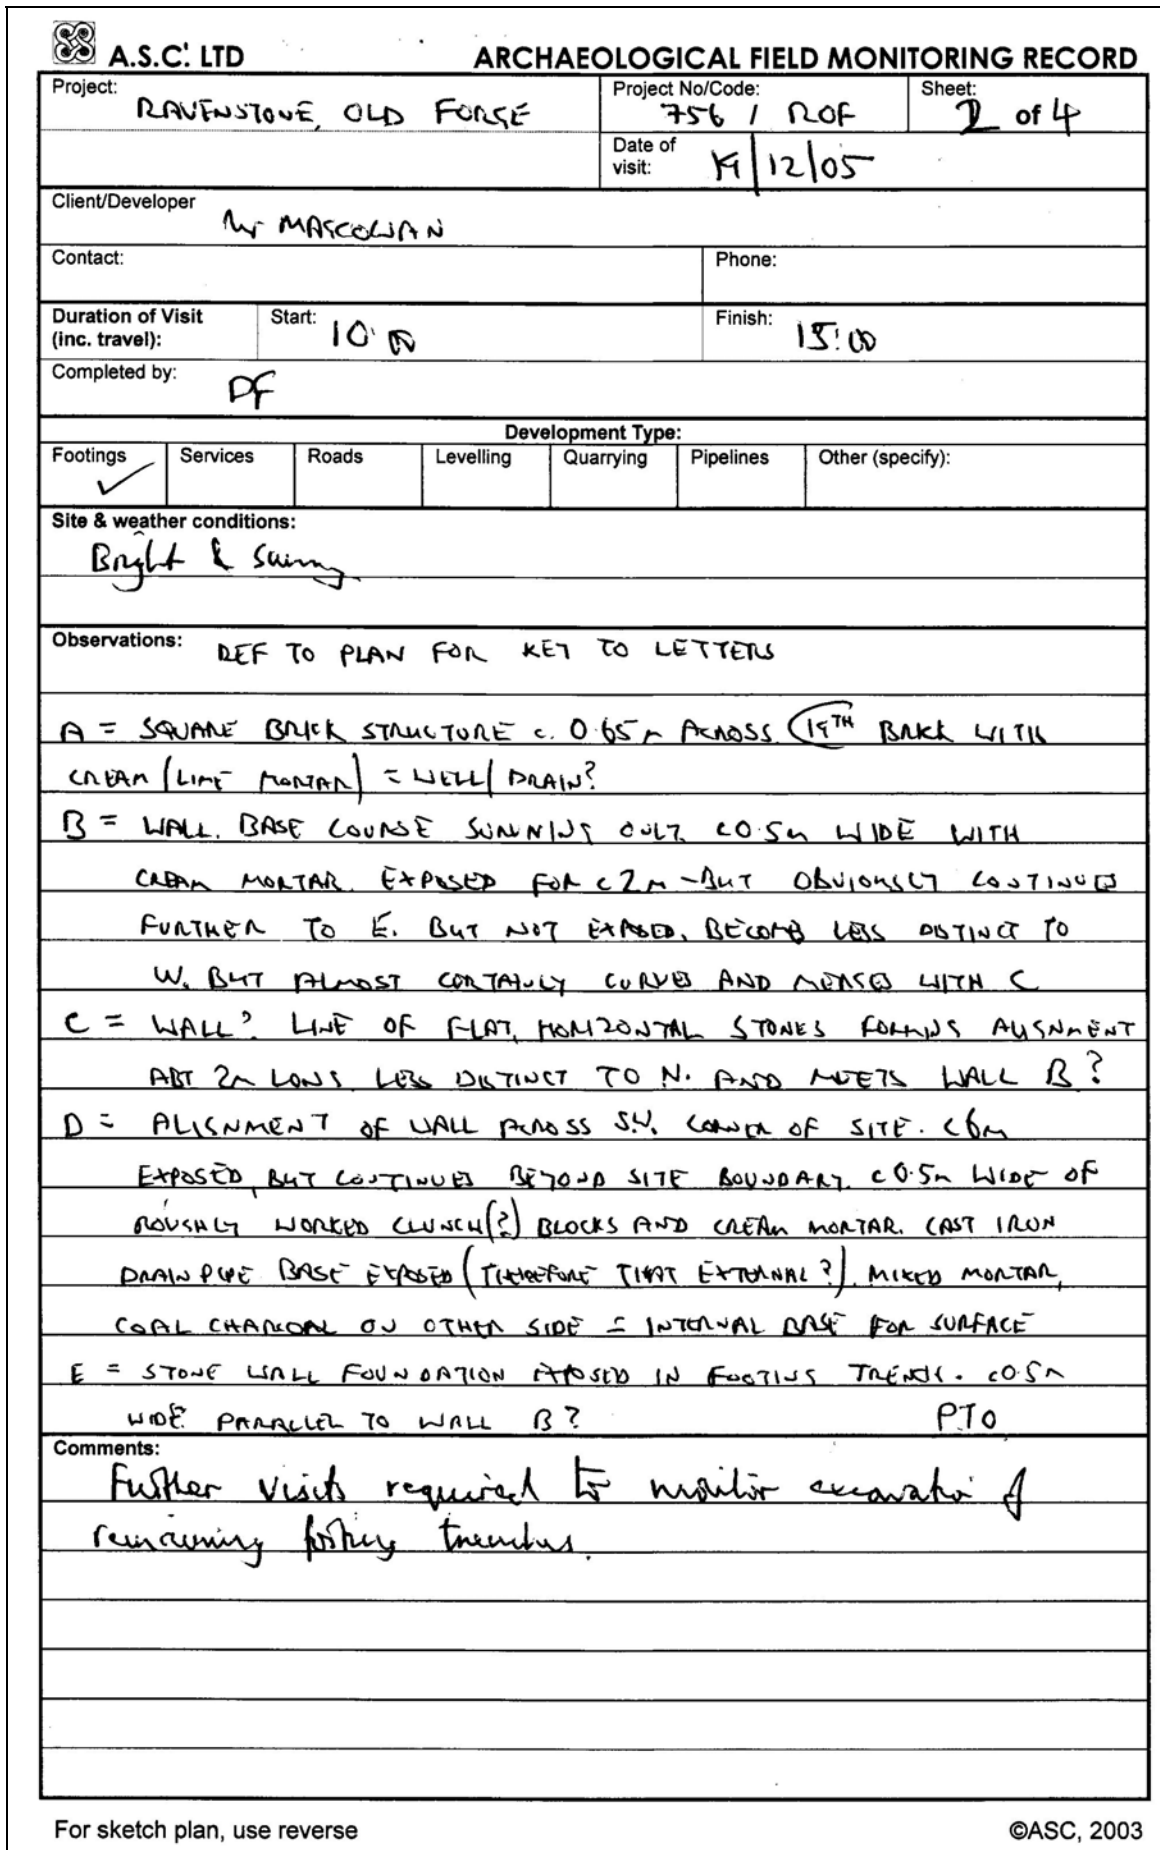 A.S.C. LTD ARCHAEOLOGICAL FIELD MONITORING RECORD
Project: RAVENSTONE, OLD FORGE
Project No/Code: 756 / ROF
Sheet: 2 of 4
Date of visit: /12/05
Client/Developer
Mr
Contact:
Phone:
Duration of Visit (inc. travel):
Start: 10:00
Finish: 15:00
Completed by: DF
Development Type:
Footings ✓ Services Roads Levelling Quarrying Pipelines Other (specify):
Site & weather conditions:
Bright & Sunny
Observations: REF TO PLAN FOR KEY TO LETTERS
A = SQUARE BRICK STRUCTURE c. 0.65m ACROSS. 19TH BRICK WITH
CREAM (LIME MORTAR) = WELL/DRAIN?
B = WALL. BASE COURSE ONLY c0.5m WIDE WITH
CREAM MORTAR. EXPOSED FOR c2m - BUT OBVIOUSLY CONTINUES
FURTHER TO E. BUT NOT EXPOSED. BECOMES LESS DISTINCT TO
W. BUT ALMOST CERTAINLY CURVES AND MERGES WITH C
C = WALL? LINE OF FLAT, HORIZONTAL STONES FORMING ALIGNMENT
ABT 2m LONG. LESS DISTINCT TO N. AND MEETS WALL B?
D = ALIGNMENT OF WALL ACROSS S.W. CORNER OF SITE. c6m
EXPOSED, BUT CONTINUES BEYOND SITE BOUNDARY. c0.5m WIDE OF
ROUGHLY WORKED CLUNCH(?) BLOCKS AND CREAM MORTAR. CAST IRON
DRAIN PIPE BASE EXPOSED (THEREFORE THAT EXTERNAL?). MIXED MORTAR,
COAL CHARCOAL ON OTHER SIDE = INTERNAL BASE FOR SURFACE
E = STONE WALL FOUNDATION EXPOSED IN FOOTING TRENCH. c0.5m
WIDE. PARALLEL TO WALL B? PTO
Comments:
Further visits required to monitor excavation of
remaining footing trenches.
For sketch plan, use reverse ©ASC, 2003